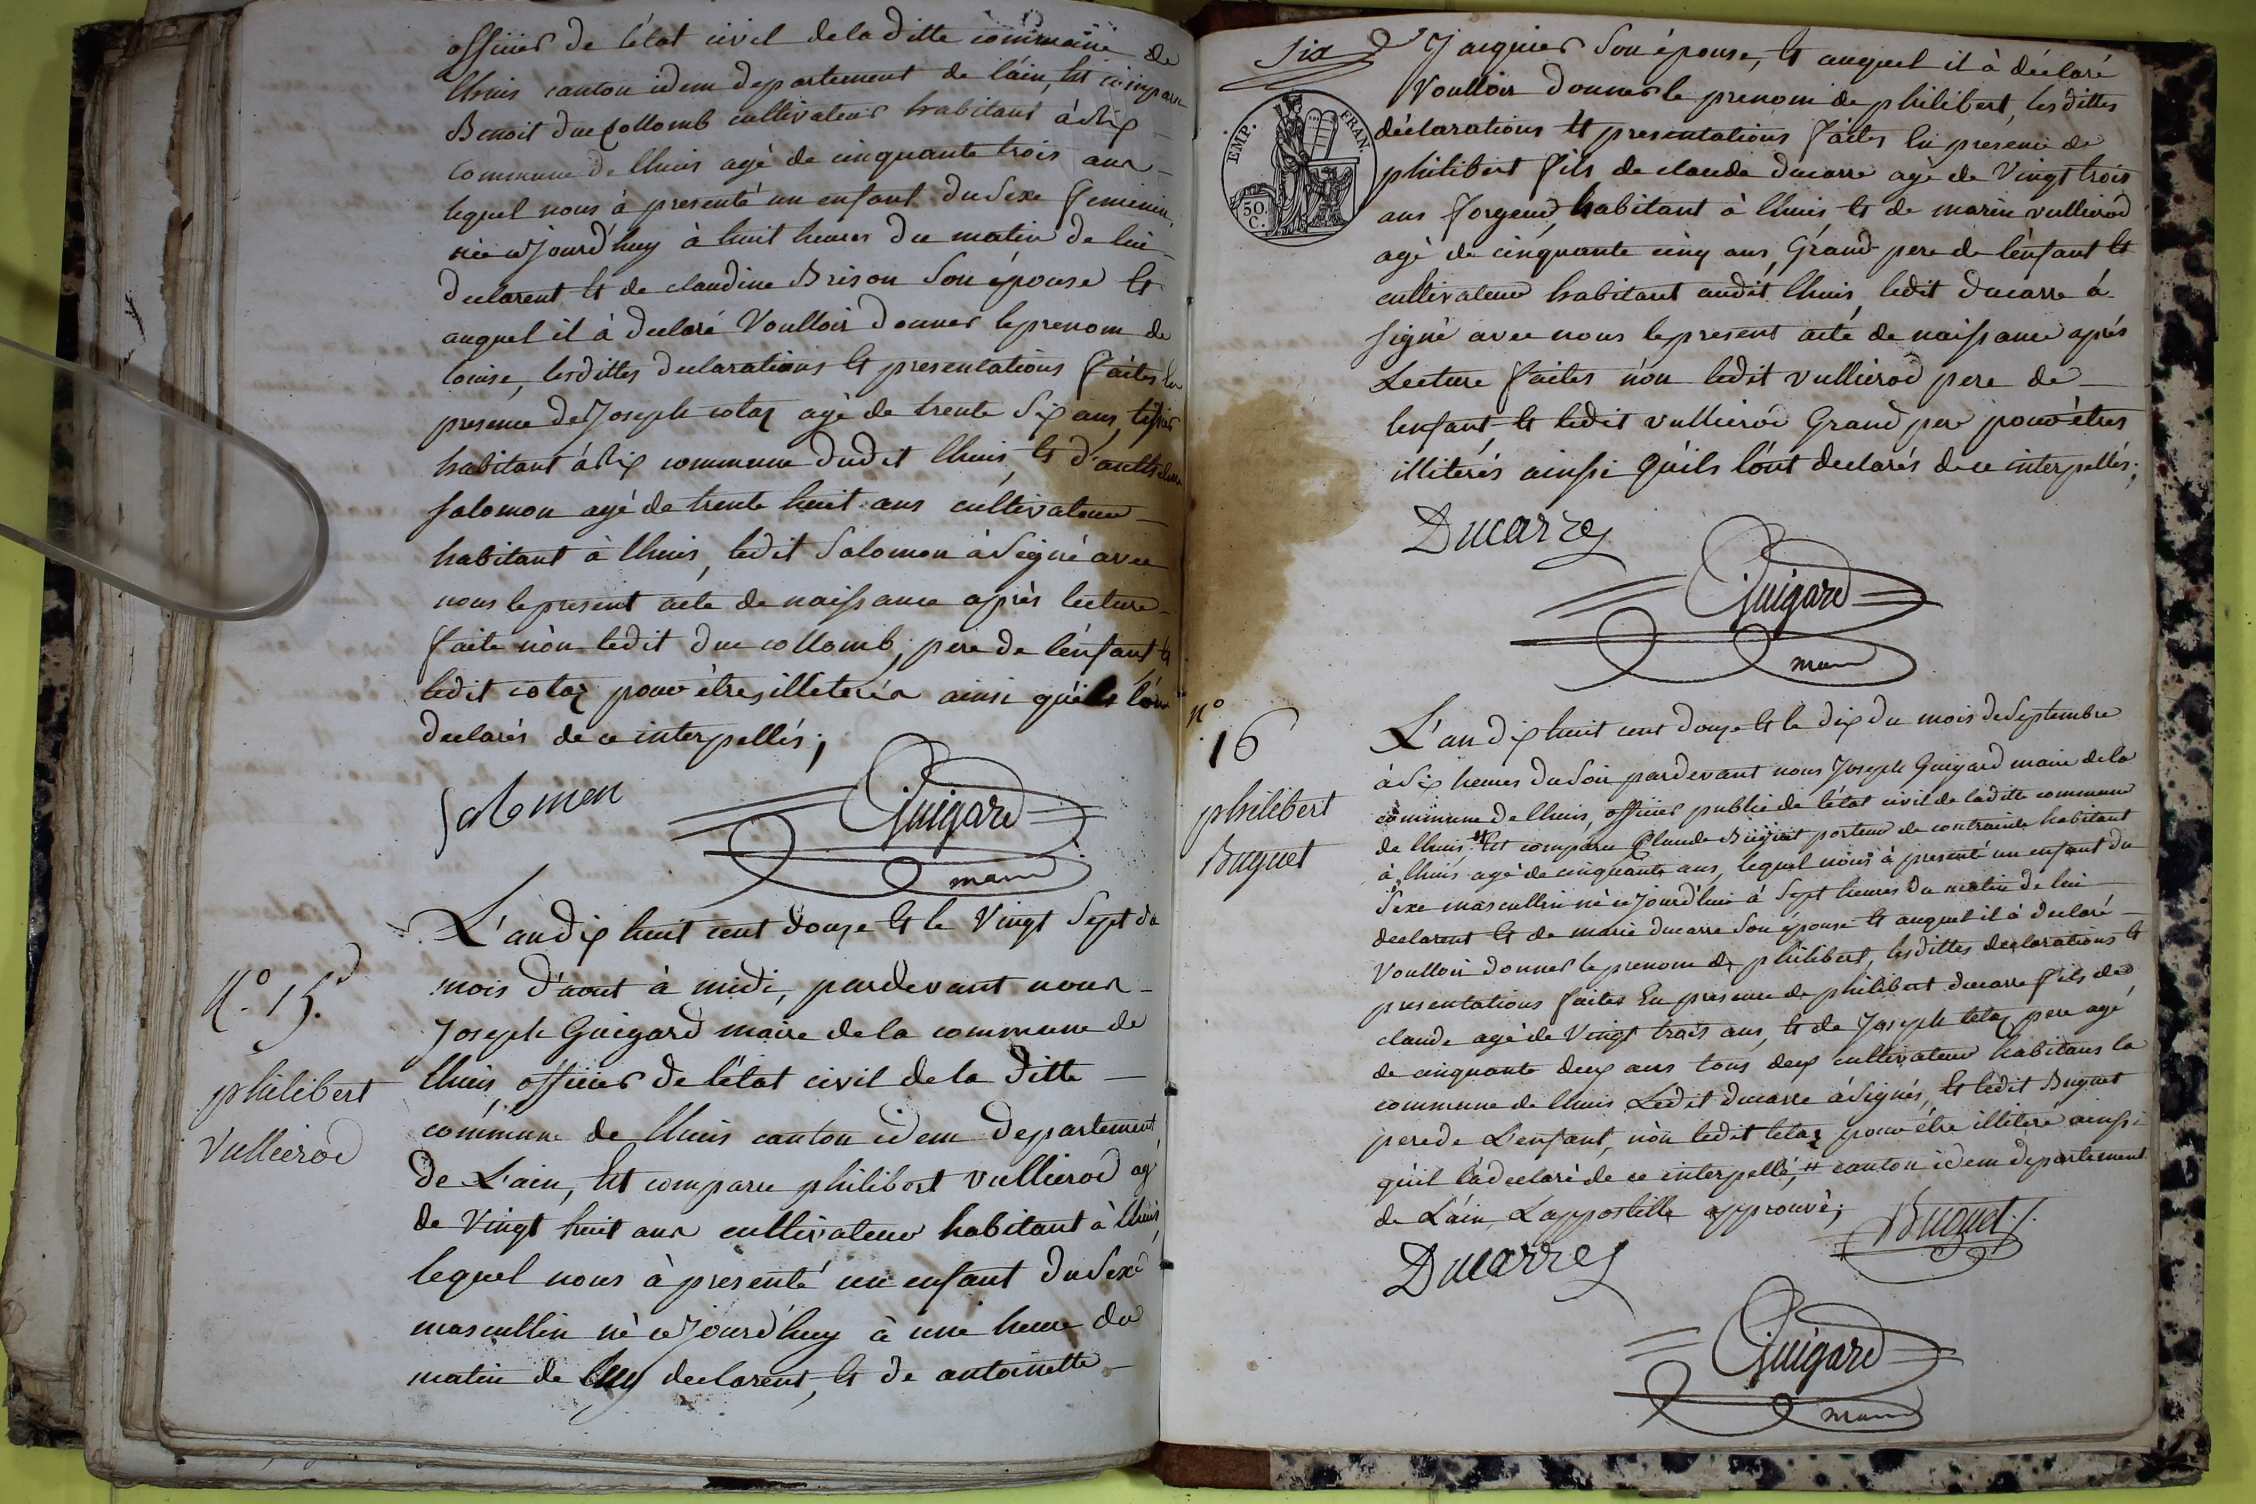 officier de létat civil de la ditte commune de
lhuis canton idem departement de láin, Est comparu
Benoit duc Collomb cultivateur habitant à
commune de lhuis agé de cinquante trois ans
lequel nous à presenté un enfant du Sexe feminin
née cejourd'huy à huit heures du matin de lui
declarent Et de claudine Brison Son épouse Et
auquel il à declaré Voulloir donner le prenom de
louise, lesdittes declarations Et presentations faites En
presence de Joseph colaz agé de trente Six ans, tissier
habitant à commune dudit lhuis, Et d'anthelme
Salomon agé de trente huit ans cultivateur
habitant à lhuis, ledit Salomon à Signé avec
nous le present acte de naissance après lecture
faite nòn ledit duc collomb, pere de lenfant Et
ledit colaz pour êtres illeterés ainsi quils lónt
declarés de ce interpellés;
Salomon
Guigard
maire
N.º 15.
philibert
Vullierod
L'an dix huit cent douze Et le Vingt Sept du
mois d'aout à midi, pardevant nous
Joseph Guigard maire de la commune de
lhuis, officier de létat civil de la ditte
commune de lhuis canton idem departement
de L'ain, Est comparu philibert vullierod agé
de Vingt huit ans cultivateur habitant à lhuis,
lequel nous à presenté un enfant du Sexe
mascullin né cejourd'huy à une heure du
matin de luy declarent, Et de antoinette
Six
EMP. FRAN.
50. C.
Jacquier Son épouse, Et auquel il à déclaré
Voulloir donner le prenom de philibert, lesdittes
déclarations Et presentations faites En presence de
philibert fils de claude ducarre agé de Vingt trois
ans forgeur, habitant à lhuis Et de marin vullierod
agé de cinquante cinq ans, Grand pere de lénfant Et
cultivateur habitant audit lhuis, ledit ducarre à
Signé avec nous le present acte de naissance aprés
Lecture faites nón ledit vullierod pere de
lenfant Et ledit vullierod Grand pere pour êtres
illiterés ainssi Quils lónt declarés de ce interpellés;
Ducarre
Guigard
maire
Nº
16
philibert
Buguet
L'an dix huit cent douze Et le dix du mois de Septembre
à Six heures du Soir pardevant nous Joseph Guigard maire de la
commune de lhuis, officier public de létat civil de laditte commune
de lhuis # Est comparu Claude Buguet porteur de contrainte habitant
à lhuis agé de cinquante ans, lequel nous à presenté un enfant du
Sexe mascullin né cejourd'hui à Sept heures du matin de lui
declarent Et de marie ducarre Son épouse Et auquel il à declaré
Voulloir donner le prenom de philibert, lesdittes declarations Et
presentations faites En presence de philibert ducarre fils de
claude agé de Vingt trois ans, Et de Joseph telaz pere agé
de cinquante deux ans tous deux cultivateur habitans la
commune de lhuis Ledit ducarre à Signés, Et ledit Buguet
pere de L'enfant, nòn ledit telaz pour être illiteré ainssi
quil là declaré de ce interpellé, # canton idem departement
de Láin, Lappostille approuvé;
Buguet
Ducarre
Guigard
maire